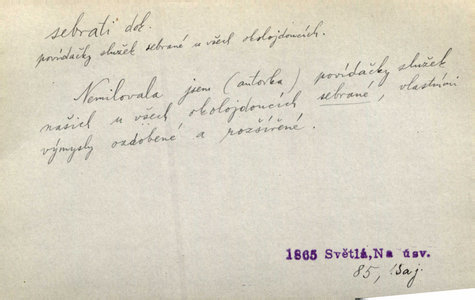 sebrati dok.
povídačky služek sebrané u všech okolojdoucích.
Nemilovala jsem (autorka) povídačky služek
našich u všech okolojdoucích sebrané, vlastními
výmysly ozdobené a rozšířené.
1865 Světlá, Na úsv.
85, Saj.